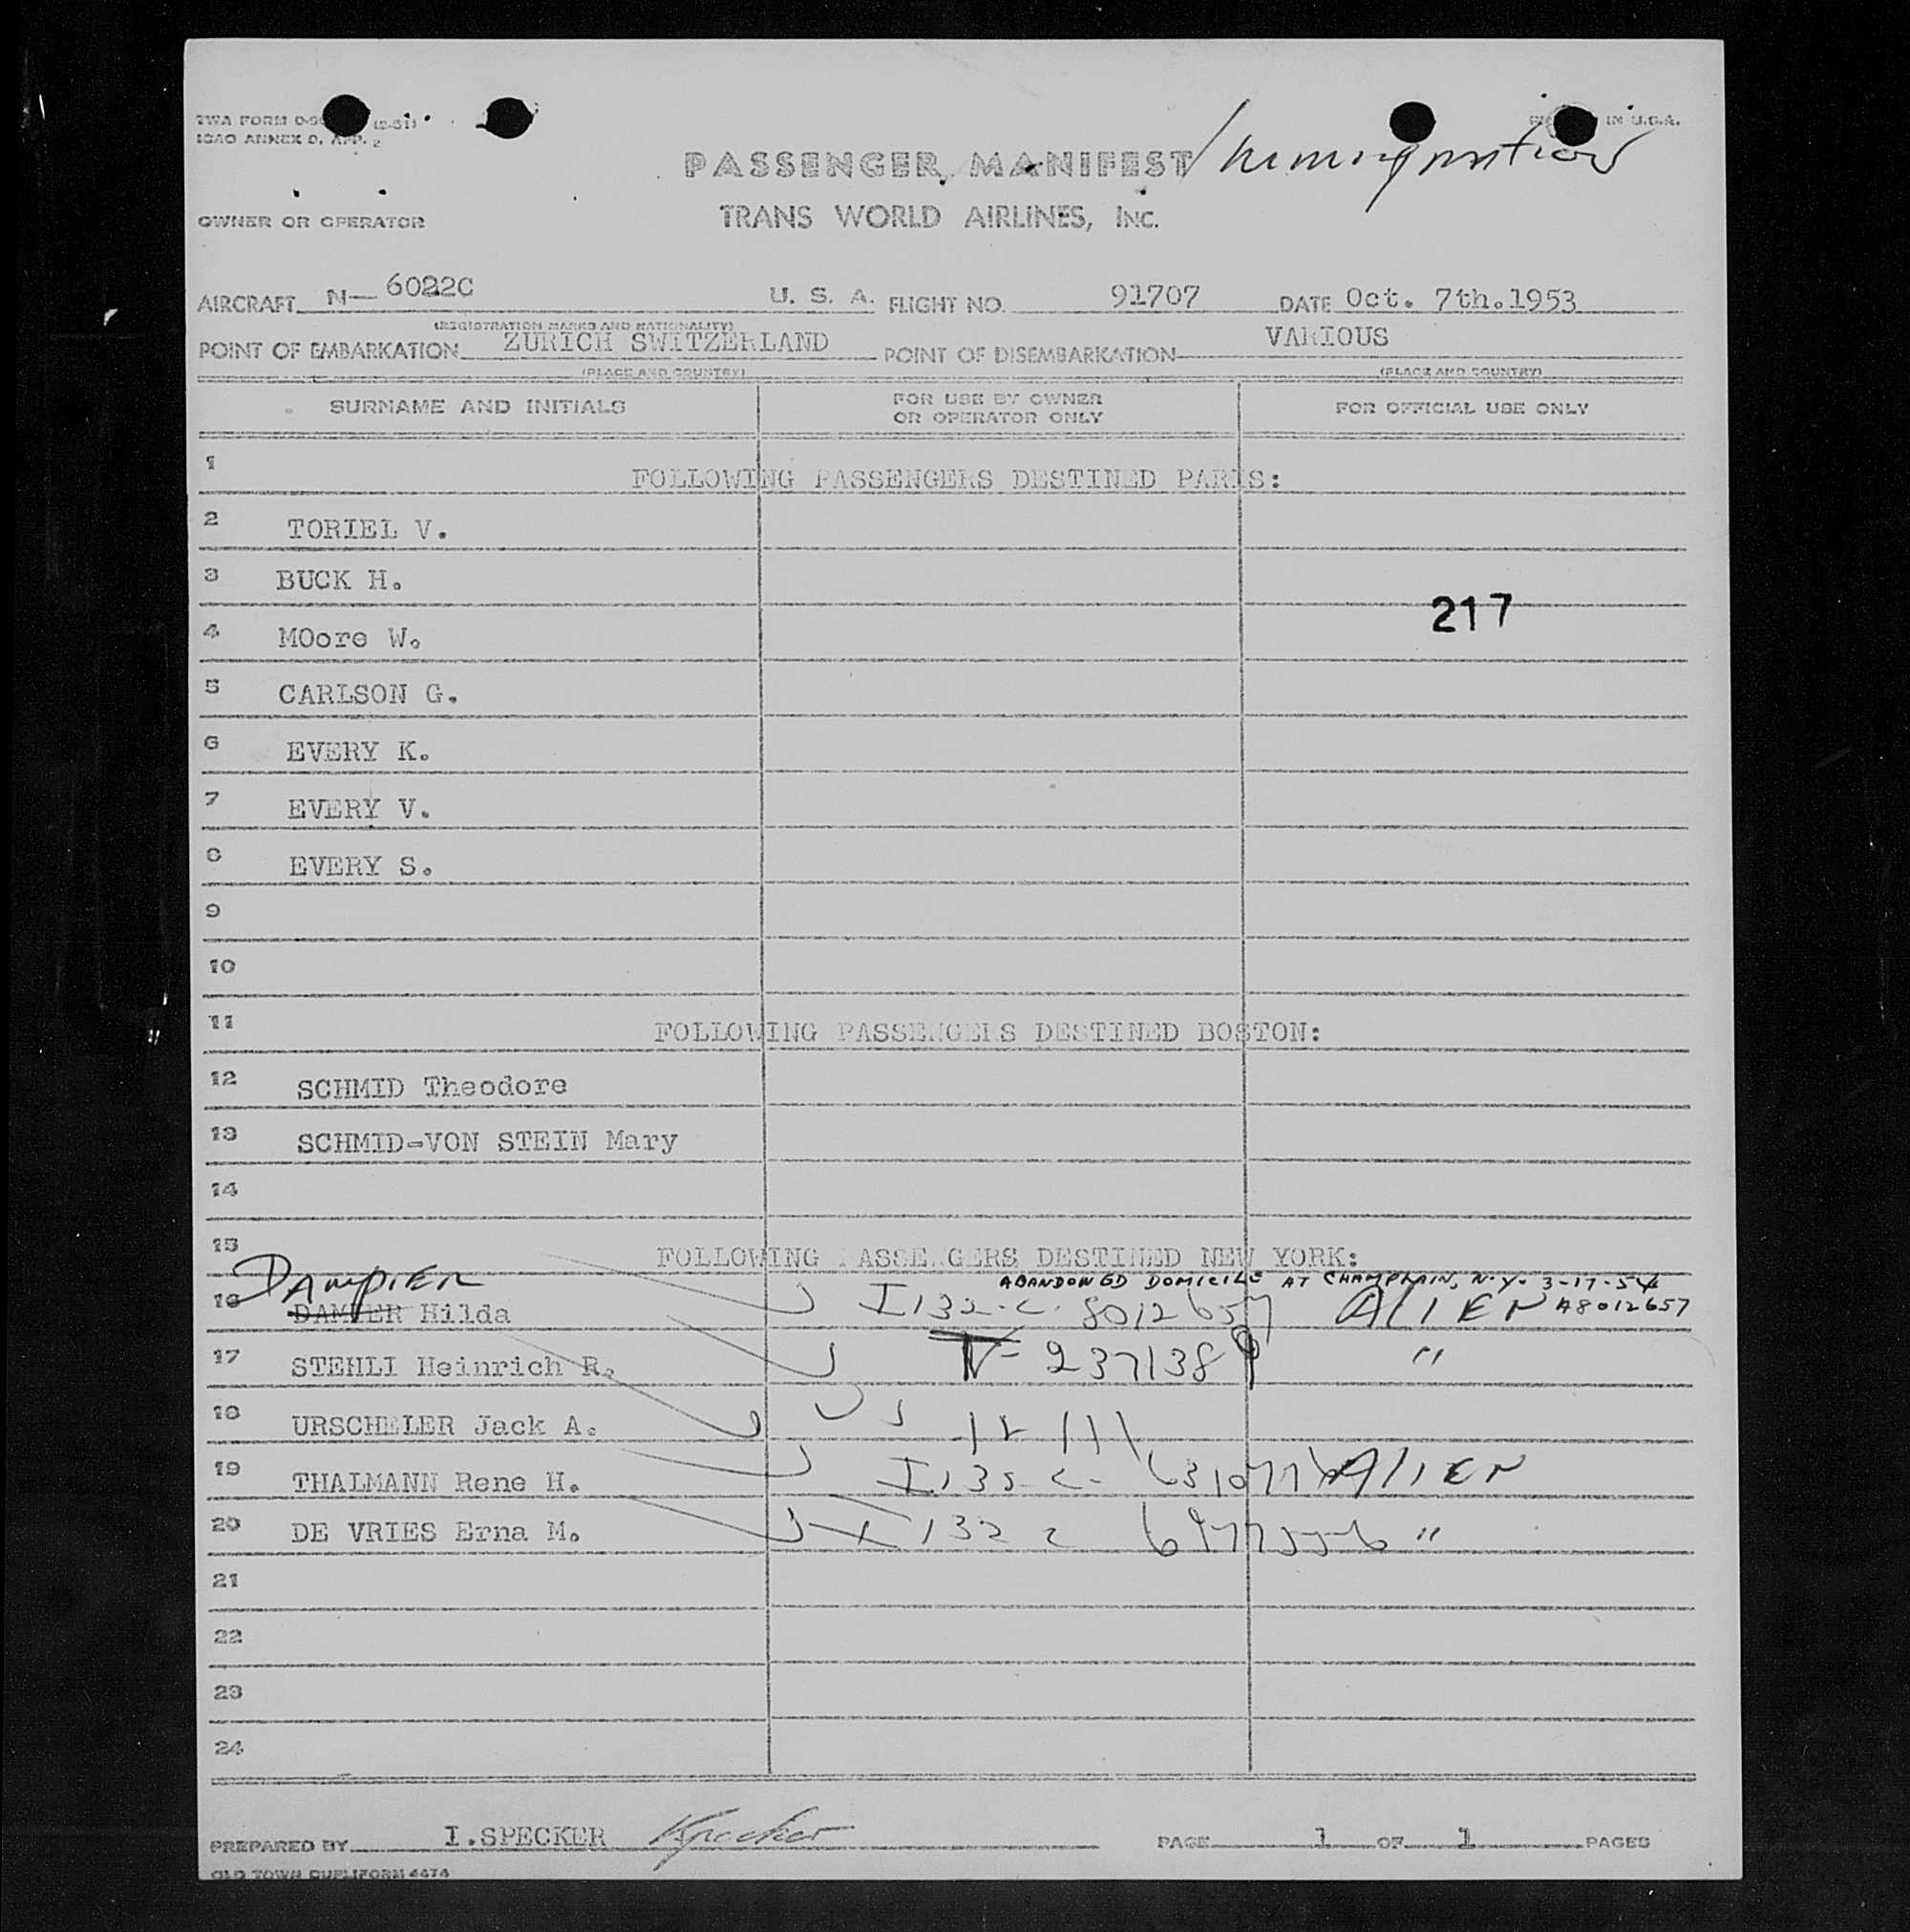 TWA FORM (2-51)
ICAO ANNEX 9, APP. 2
IN U.S.A.
PASSENGER MANIFEST Immigration
OWNER OR OPERATOR TRANS WORLD AIRLINES, INC.
AIRCRAFT N— 6022C U. S. A. FLIGHT NO. 91707 DATE Oct. 7th.1953
(REGISTRATION MARKS AND NATIONALITY)
POINT OF EMBARKATION ZURICH SWITZERLAND POINT OF DISEMBARKATION VARIOUS
(PLACE AND COUNTRY) (PLACE AND COUNTRY)
SURNAME AND INITIALS FOR USE BY OWNER OR OPERATOR ONLY FOR OFFICIAL USE ONLY
1 FOLLOWING PASSENGERS DESTINED PARIS:
2 TORIEL V.
3 BUCK H.
217
4 MOore W.
5 CARLSON G.
6 EVERY K.
7 EVERY V.
8 EVERY S.
9
10
11 FOLLOWING PASSENGERS DESTINED BOSTON:
12 SCHMID Theodore
13 SCHMID-VON STEIN Mary
14
15 FOLLOWING PASSENGERS DESTINED NEW YORK:
DAMPIER ABANDONED DOMICILE AT CHAMPLAIN, N.Y. 3-17-54
16 DAMPER Hilda I132-C. 8012657 ALIEN A8012657
17 STEHLI Heinrich R. V- 2371389 "
18 URSCHELER Jack A.
19 THALMANN Rene H. ALIEN
20 DE VRIES Erna M. I 132 c "
21
22
23
24
PREPARED BY I.SPECKER Specker PAGE 1 OF 1 PAGES
OLD TOWN DUPLIFORM 4474